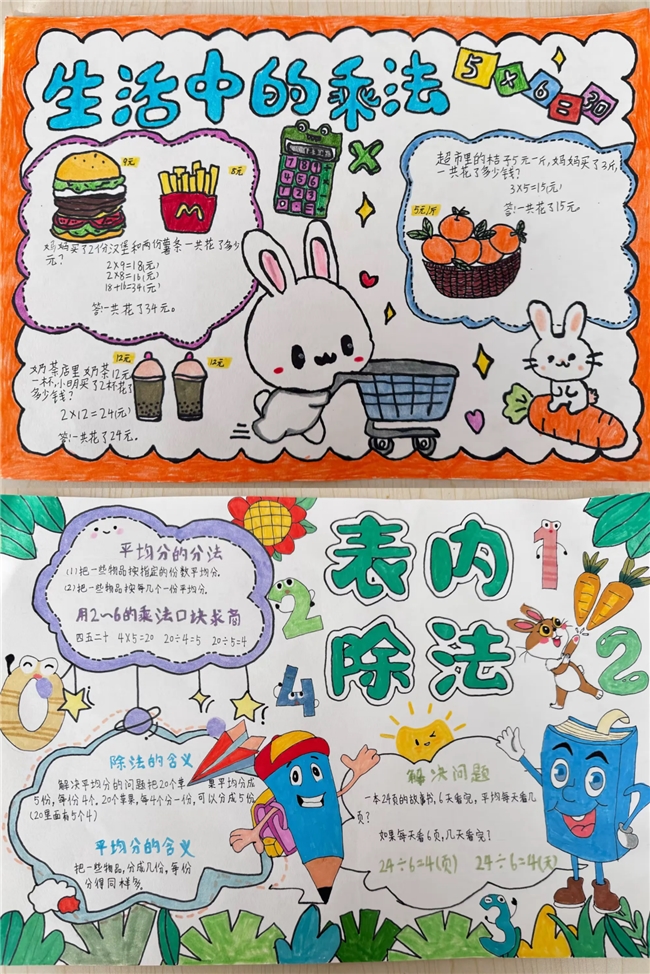 生活中的乘法
5×6=30
9元
8元
妈妈买了2份汉堡和两份薯条一共花了多少
元?
2×9=18(元)
2×8=16(元)
18+16=34(元)
答:一共花了34元。
超市里的桔子5元一斤,妈妈买了3斤,
一共花了多少钱?
3×5=15(元)
答:一共花了15元。
5元1斤
12元
12元
奶茶店里奶茶12元
一杯,小明买了2杯花了
多少钱?
2×12=24(元)
答:一共花了24元。
表内
除法
平均分的分法
(1)把一些物品按指定的份数平均分.
(2)把一些物品按每几个一份平均分.
用2~6的乘法口块求商
四五二十 4×5=20 20÷4=5 20÷5=4
1
2
2
4
0
除法的含义
解决平均分的问题把20个苹果平均分成
5份,每份4个.20个苹果,每4个分一份,可以分成5份
(20里面有5个4)
平均分的含义
把一些物品,分成几份,每份
分得同样多.
解决问题
一本24页的故事书,6天看完,平均每天看几
页?
如果每天看6页,几天看完?
24÷6=4(页) 24÷6=4(天)
3